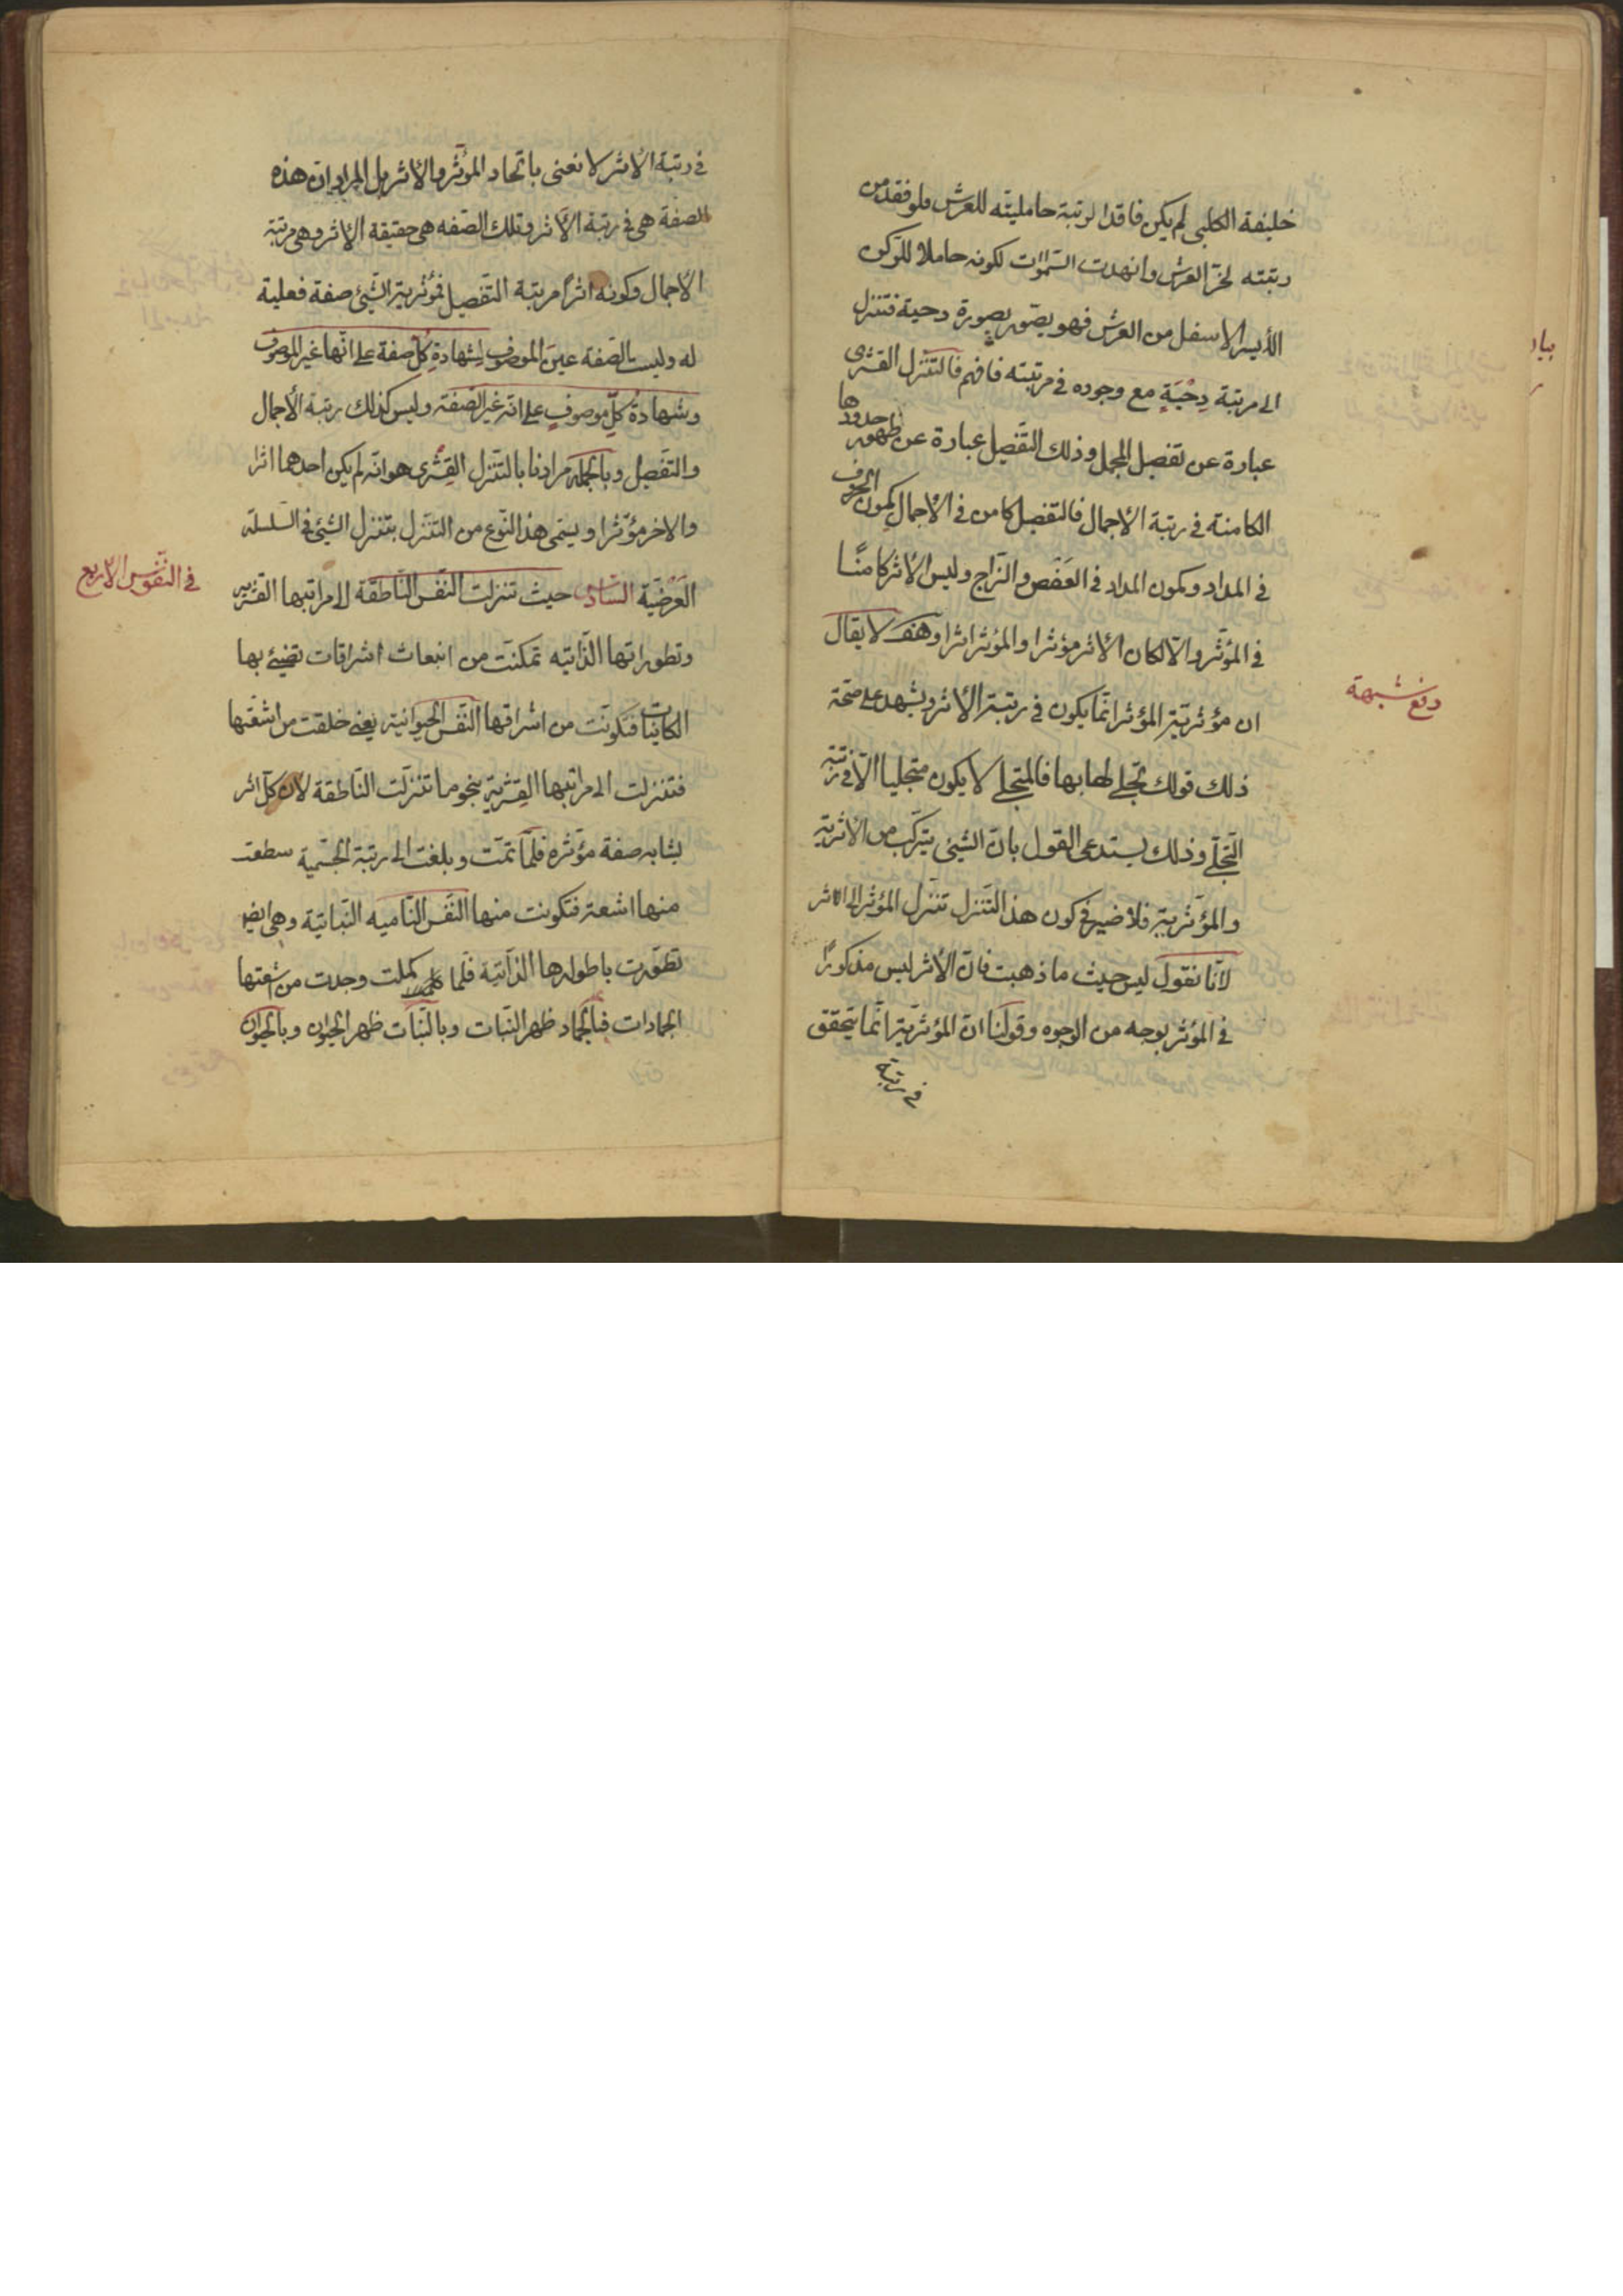 خليفة الكلبى لم يكن فاقدا لرتبة حامليته للعرش فلو فقد من
رتبته لخرّ العرش وانهدت السّموات لكونه حاملا للركن
الأيسر الاسفل من العرش فهو يصوّر بصورة دحية فتنزل
الى مرتبة دِحْيَةٍ مع وجوده فى مرتبته فافهم فالتنزل القشرى
عبارة عن تفصيل المجمل وذلك التفصيل عبارة عن ظهور حدودها
الكامنة فى رتبة الأجمال فالتفصيل كامن فى الأجمال كمون الحروف
فى المداد وكمون المداد فى العَفَص والزاج وليس الأثر كامنًا
فى المؤثّر والّا لكان الأثر مؤثرا والمؤثر اثرا وهف لا يقال
ان مؤثريّة المؤثر انّما يكون فى رتبة الأثر ويشهد على صحّة
ذلك قولك تجلى لها بها فالمتجلى لا يكون متجليا الّا فى رتبة
التّجلّى وذلك يستدعى القول بانّ الشيئ يتركّب من الأثرية
والمؤثّرية فلا ضير فى كون هذا التّنزل تنزل المؤثر الى الاثر
لانّا نقول ليس حيث ما ذهبت فانّ الأثر ليس مذكورًا
فى المؤثر بوجه من الوجوه وقولنا انّ المؤثريّة انّما يتحقق
فى رتبة
دفع شبهة
فى رتبة الأثر لا نعنى باتّحاد المؤثّر والأثر بل المراد انّ هذه
الصفة هى فى رتبة الأثر وتلك الصّفه هى حقيقة الأثر وهى مرتبة
الأجمال وكونه اثرًا مرتبة التّفصيل فمؤثرية الشّيئ صفة فعلية
له وليست الصّفه عينَ الموصوف لشهادةِ كلّ صفة على انّها غير الموصوف
وشهادة كلّ موصوفٍ على انّه غير الصّفة وليس كذلك رتبة الأجمال
والتفصيل وبالجملة مرادنا بالتّنزل القِشرى هو انّه لم يكن احدهما اثرا
والاخر مؤثّرا ويسمّى هذا النّوع من التنّزل بتنزل الشّيئ فى السّلسلة
العَرْضيّة السّادس حيث تنزلت النّفس النّاطقة الى مراتبها القشرية
وتطوراتها الذّاتيّه تمكنت من انبعاث اشراقات تضيئ بها
الكاينات فتكوّنت من اشراقها النّفس الحيوانية يعنى خلقت من اشعّتها
فتنزلت الى مراتبها القشرية بنحو ما تنزّلت النّاطقة لأن كلّ اثر
يشابه صفة مؤثره فلمّا تمّت وبلغت الى رتبة الجسمية سطعت
منها اشعة فتكونت منها النّفس النّاميه النّباتية وهى ايضا
تطوّرت باطوارها الذّاتية فلما كملت وجدت من اشعتها
الجمادات فبالجماد ظهر النّبات وبالنّبات ظهر الحيوان وبالحيوان
فى النّفوس الأربع